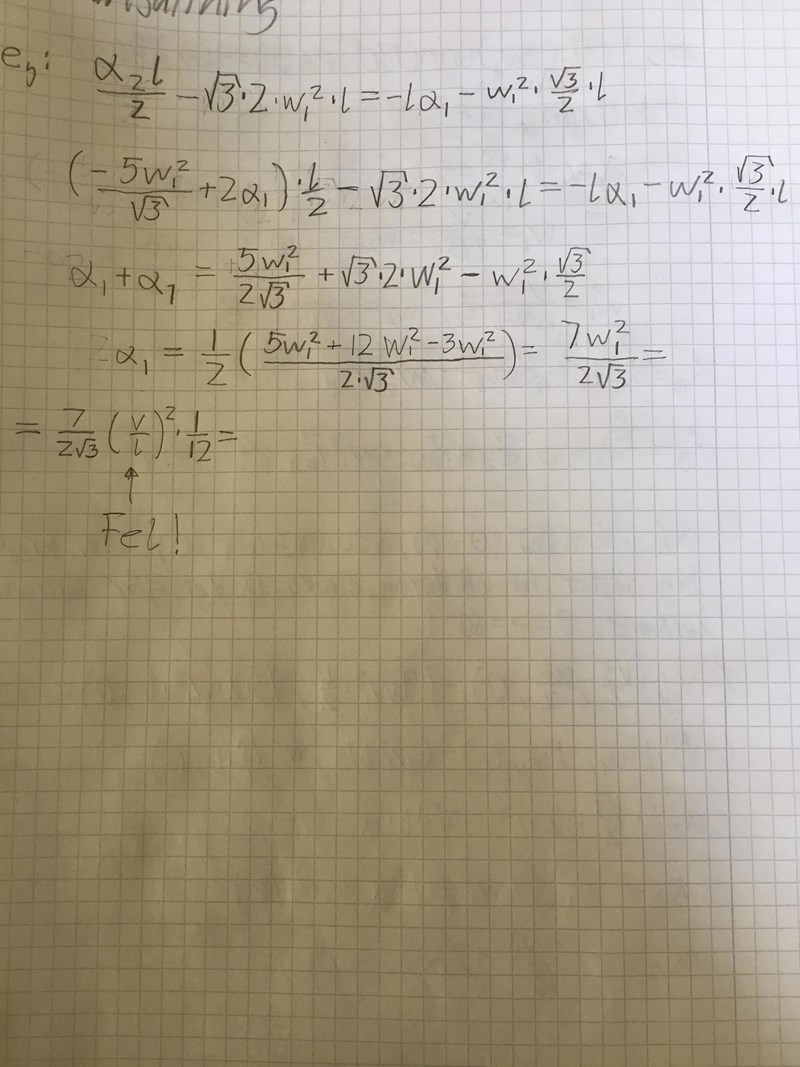 e_y: α₂l/2 - √3·2·w₁²·l = -lα₁ - w₁²·√3/2·l
(-5w₁²/√3 + 2α₁)·l/2 - √3·2·w₁²·l = -lα₁ - w₁²·√3/2·l
α₁ + α₁ = 5w₁²/(2√3) + √3·2·w₁² - w₁²·√3/2
α₁ = 1/2 ((5w₁² + 12w₁² - 3w₁²)/(2·√3)) = 7w₁²/(2√3) =
= 7/(2√3) (v/l)²·1/12 =
↑
Fel!